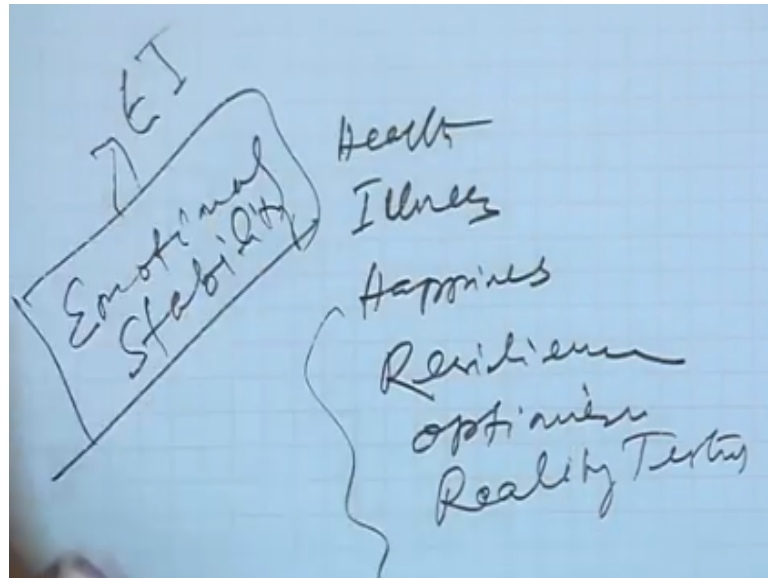 ↗ EI
Emotional
Stability
Health
Illness
Happines
Resilience
optimism
Reality Testing